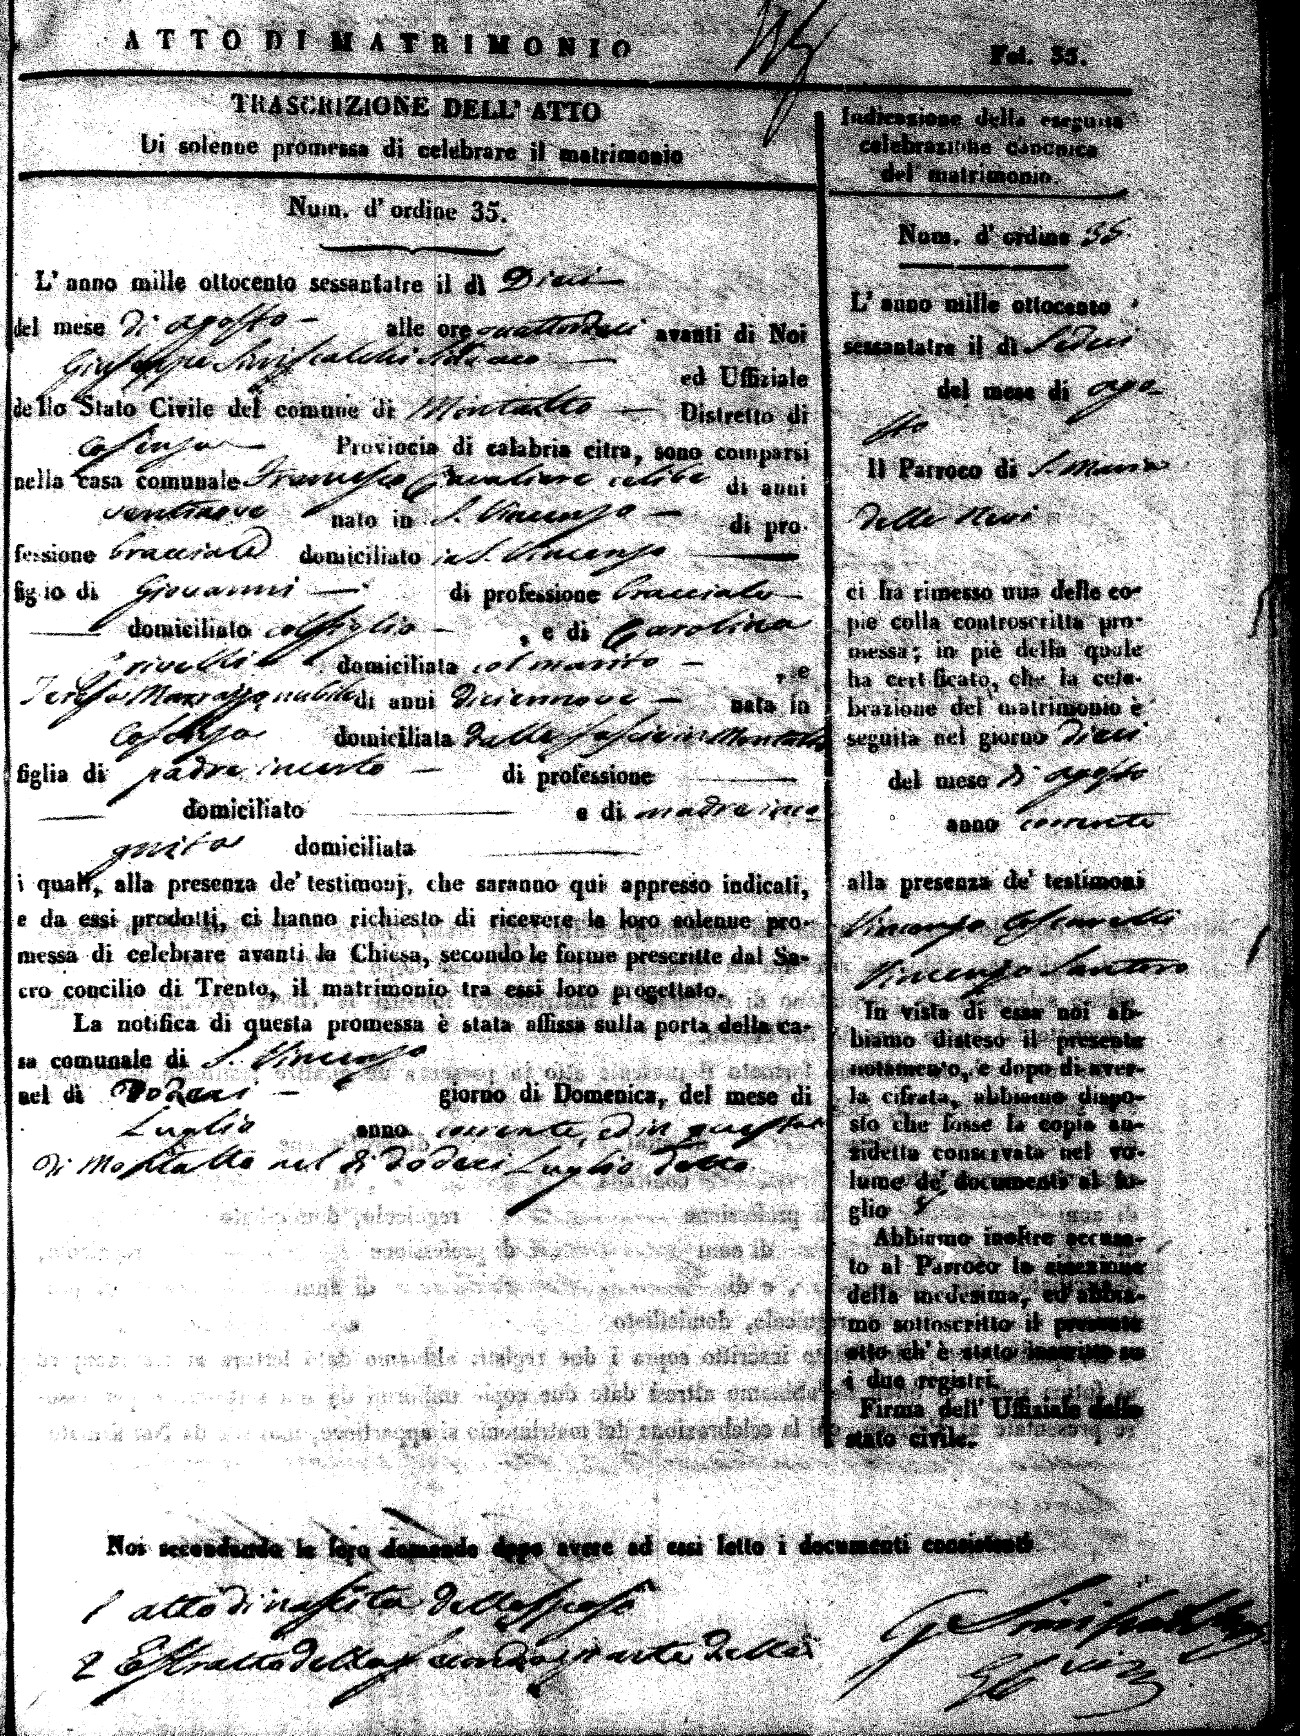 ATTO DI MATRIMONIO
Fol. 35.
TRASCRIZIONE DELL' ATTO
Di solenne promessa di celebrare il matrimonio
Num. d' ordine 35.
L' anno mille ottocento sessantatre il dì Dieci
del mese di agosto alle ore quattordeci avanti di Noi
Giuseppe Siniscalchi Sindaco
ed Uffiziale
dello Stato Civile del comune di Montalto Distretto di
Cosenza Provincia di calabria citra, sono comparsi
nella casa comunale Francesco Cavaliere celibe di anni
ventinove nato in S. Vincenzo di pro-
fessione bracciale domiciliato in S. Vincenzo
figlio di Giovanni di professione bracciale
domiciliato col figlio , e di Carolina
domiciliata col marito , e
Teresa nubile di anni diciennove nata in
Cosenza domiciliata dalle in Montalto
figlia di padre incerto di professione
domiciliato e di madre inco
gnita domiciliata
i quali, alla presenza de' testimonj, che saranno qui appresso indicati,
e da essi prodotti, ci hanno richiesto di ricevere la loro solenne pro-
messa di celebrare avanti la Chiesa, secondo le forme prescritte dal Sa-
cro concilio di Trento, il matrimonio tra essi loro progettato.
La notifica di questa promessa è stata affissa sulla porta della ca-
sa comunale di S. Vincenzo
nel dì Dodeci giorno di Domenica, del mese di
Luglio anno corrente, ed in questa
di Montalto nel di dodeci Luglio detto
Noi secondando la loro domanda dopo avere ad essi letto i documenti consistenti
1 atto di nascita dello sposo
2 Estratto della
Indicazione della eseguita
celebrazione canonica
del matrimonio.
Num. d' ordine 35
L' anno mille ottocento
sessantatre il dì Sedeci
del mese di ago
sto
Il Parroco di S. Maria
delle Nevi
ci ha rimesso una delle co-
pie colla controscritta pro-
messa; in piè della quale
ha certificato, che la cele-
brazione del matrimonio è
seguita nel giorno Dieci
del mese di agosto
anno corrente
alla presenza de' testimoni
Vincenzo
Vincenzo Santoro
In vista di essa noi ab-
biamo disteso il presente
notamento, e dopo di aver-
la cifrata, abbiamo dispo-
sto che fosse la copia an-
zidetta conservata nel vo-
lume de' documenti al fo-
glio
Abbiamo inoltre accusa-
to al Parroco la ricezione
della medesima, ed abbia-
mo sottoscritto il presente
atto ch' è stato inscritto su
i due registri.
Firma dell' Uffiziale dello
stato civile.
G Siniscalchi